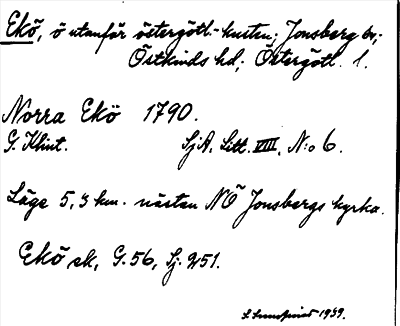 Ekö, ö utanför östergötl.-kusten; Jonsberg sn;
Östkinds hd; Östergötl. l.
Norra Ekö 1790.
G. Klint. SjA. Litt. VIII, N:o 6.
Läge 5,3 km. nästan NÖ Jonsbergs kyrka.
Ekö ek, G. 56, Sj. 251.
1939.